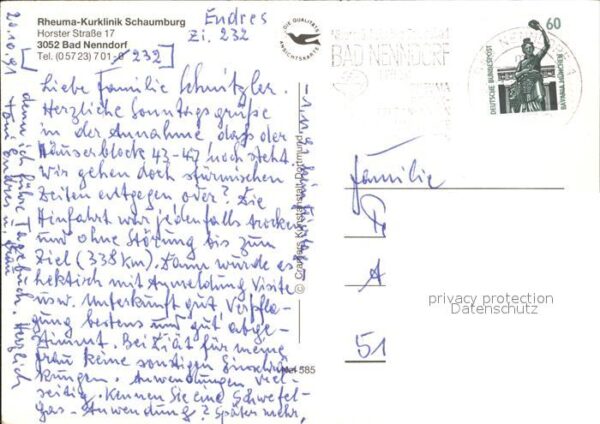 Rheuma-Kurklinik Schaumburg
Horster Straße 17
3052 Bad Nenndorf
Tel. (05723) 701-0
[232]
Endres
Zi. 232
20.10.91
Liebe Familie Schnitzler.
Herzliche Sonntagsgrüße
in der Annahme daß der
Häuserblock 43-47 noch steht.
Wir gehen doch stürmischen
Zeiten entgegen oder? Die
Hinfahrt war jedenfalls trocken
und ohne Störung bis zum
Ziel (338 km). Dann wurde es
hektisch mit Anmeldung Visite
usw. Unterkunft gut, Verpfle-
gung bestens und gut abge-
stimmt. Bei Diät für meine
Frau keine sonstigen Einschrän-
kungen. Anwendungen viel-
seitig. Kennen Sie eine Schwefel-
gas-Anwendung? Später mehr,
denn ich führe Tagebuch. Herzlich
Toni Endres u. Frau
DIE QUALITÄTS
ANSICHTSKARTE
©
Dortmund
Nei 585
BAD NENNDORF
60
DEUTSCHE BUNDESPOST
BAVARIA MÜNCHEN
Familie
A
51
privacy protection
Datenschutz